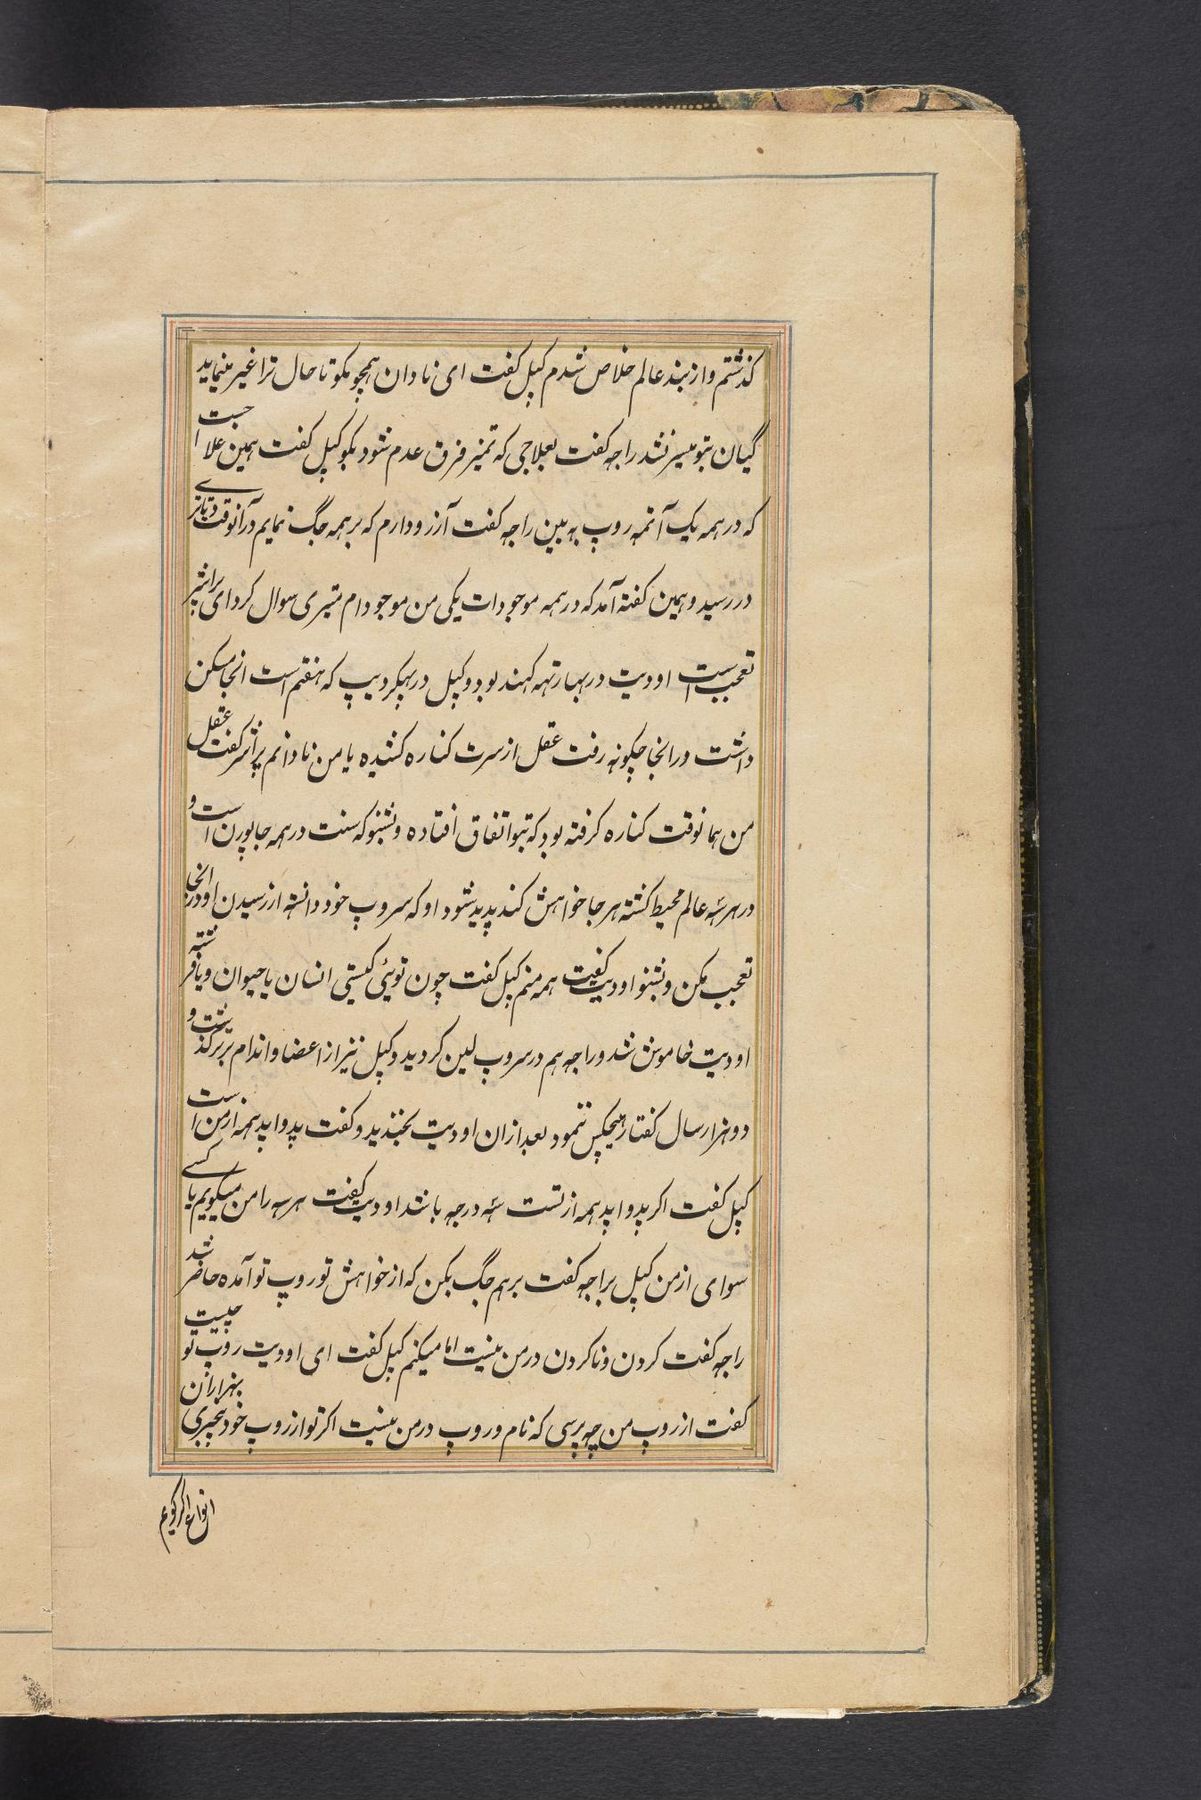 کذشتم و از بند عالم خلاص شدم کپل کفت ای نادان همچو مکو تا حال ترا غیر مینماید
کیان بتو میسر نشد راجه کفت بعلاجی که تمیز فرق عدم شود بکو کپل کفت همین علاجست
که در همه یک آتمه روپ به بین راجه کفت آرزو دارم که برهمه جک نمایم در آنوقت دتاتری
در رسید و همین کفته آمد که در همه موجودات یکی من موجودام متیری سوال کرد ای پراشر
تعجب است اودیت در بهارتهه کهند بود و کپل در پهکر دیپ که هفتم است انجا مسکن
داشت در انجا چکونه رفت عقل از سرت کناره کشیده یا من نادانم پراشر کفت عقل
من همانوقت کناره کرفته بود که بتو اتفاق افتاده و بشنو که سنت در همه جا پورن است و
در هرسه عالم محیط کشته هر جا خواهش کند پدید شود او که سروپ خود دانسته از رسیدن او در انجا
تعجب مکن و بشنو اودیت کفت همه منم کپل کفت چون توئی کیستی انسان یا حیوان و یا فرشته
اودیت خاموش شد و راجه هم در سروپ لین کردید و کپل نیز از اعضا و اندام برتر کذشت و
دو هزار سال کفتار هیچکس ننمود بعد ازان اودیت بخندید و کفت پد و اپد همه از من است
کپل کفت اکر پد و اپد همه از تست سه درجه باشد اودیت کفت هر سه را من میکویم یا کسی
سوای از من کپل براجه کفت برهم جک بکن که از خواهش تو روپ تو آمده حاضر شد
راجه کفت کردن و ناکردن در من نیست اما میکنم کپل کفت ای اودیت روپ تو چیست
کفت از روپ من چه پرسی که نام و روپ در من نیست اکر تو از روپ خود بیخبری بهزاران
انواع اکر کویم